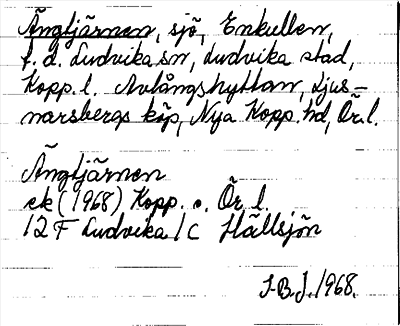 Ängtjärnen, sjö, Enkullen,
f. d. Ludvika sn, Ludvika stad,
Kopp. l. Avlångshyttan, Ljus-
narsbergs köp, Nya Kopp. hd, Ör. l.
Ängtjärnen
ek (1968) Kopp. o. Ör l.
12 F Ludvika 1 c Hällsjön
I.B.J. 1968.